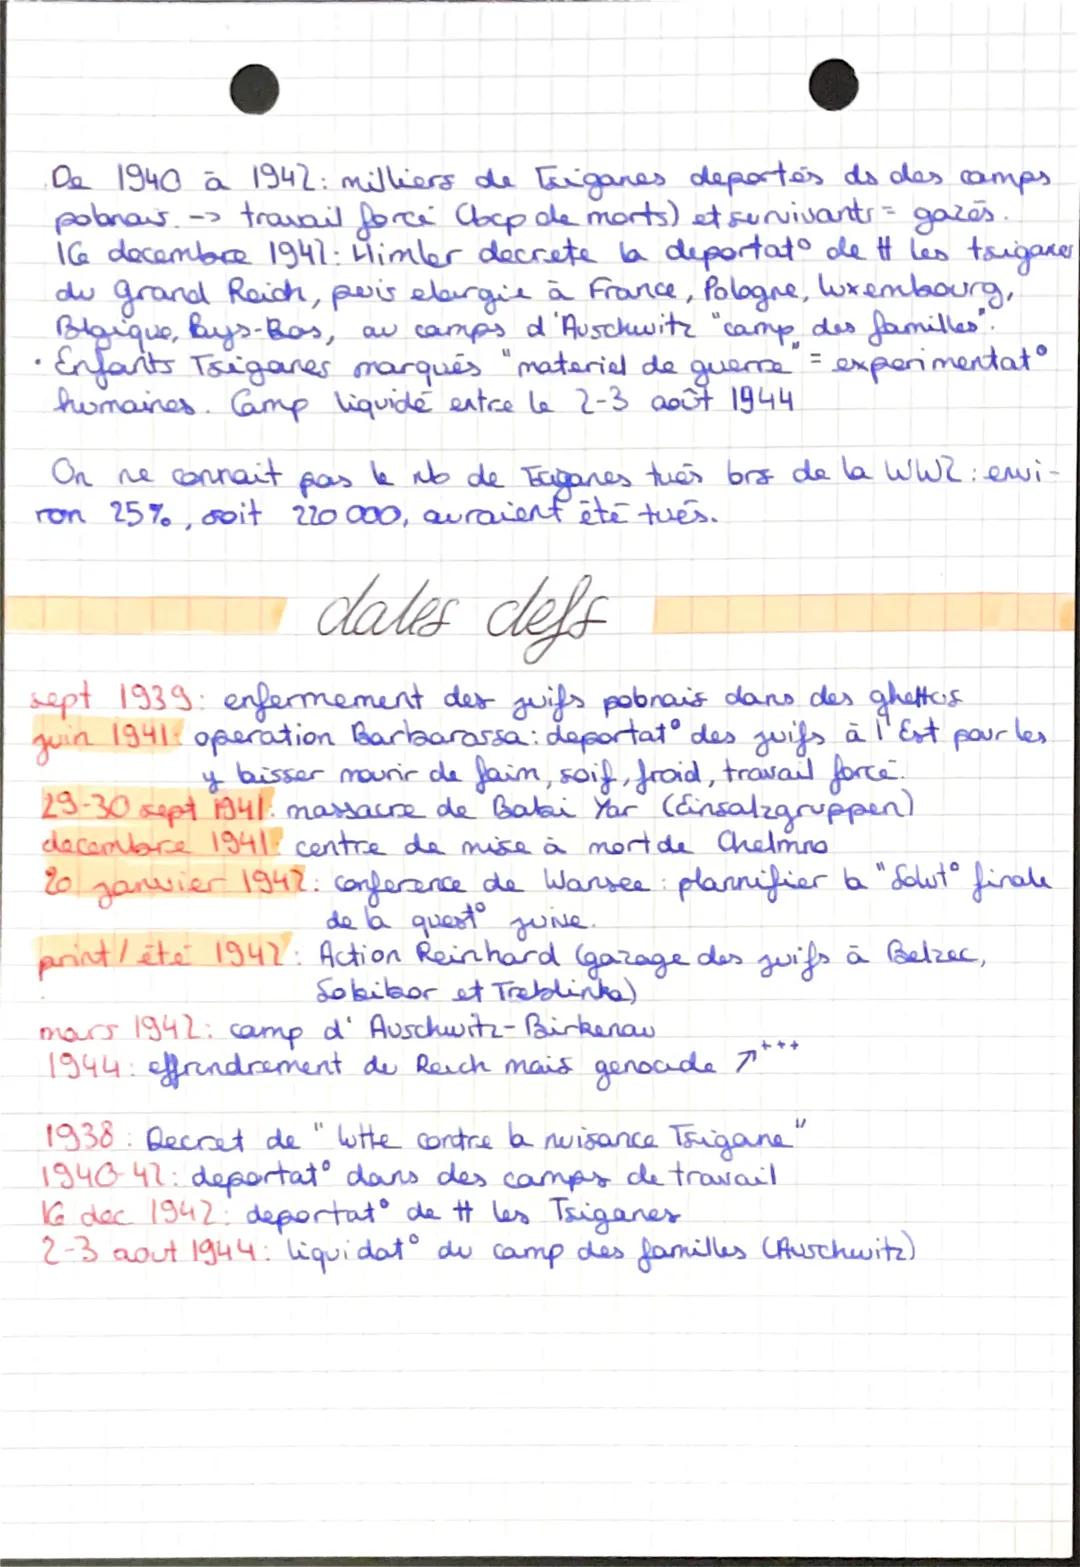 De 1940 à 1942: milliers de Tsiganes deportés ds des camps
polonais. -> travail forcé (bcp de morts) et survivants = gazés.
16 decembre 1942: Himler decrete la deportat° de tt les tsiganes
du grand Reich, puis elargie à France, Pologne, Luxembourg,
Blgique, Pays-Bas, au camps d'Auschwitz "camp des familles".
· Enfants Tsiganes marqués "materiel de guerre" = experimentat°
humaines. Camp liquidé entre le 2-3 août 1944
On ne connait pas le nb de Tsiganes tués lors de la WW2: envi-
ron 25%, soit 220 000, auraient été tués.
dates clefs
sept 1939: enfermement des juifs polonais dans des ghettos
juin 1941: operation Barbarossa: deportat° des juifs à l'Est pour les
y laisser mourir de faim, soif, froid, travail forcé.
29-30 sept 1941: massacre de Babi Yar (Einsatzgruppen)
decembre 1941: centre de mise à mort de Chelmno
20 janvier 1942: conference de Wansee: plannifier la "Solut° finale
de la quest° juive.
print/été 1942: Action Reinhard (gazage des juifs à Belzec,
Sobibor et Treblinka)
mars 1942: camp d'Auschwitz-Birkenau
1944: effrondrement du Reich mais genocide ↗+++
1938: Decret de "lutte contre la nuisance Tsigane"
1940-42: deportat° dans des camps de travail
16 dec 1942: deportat° de tt les Tsiganes
2-3 aout 1944: liquidat° du camp des familles (Auschwitz)